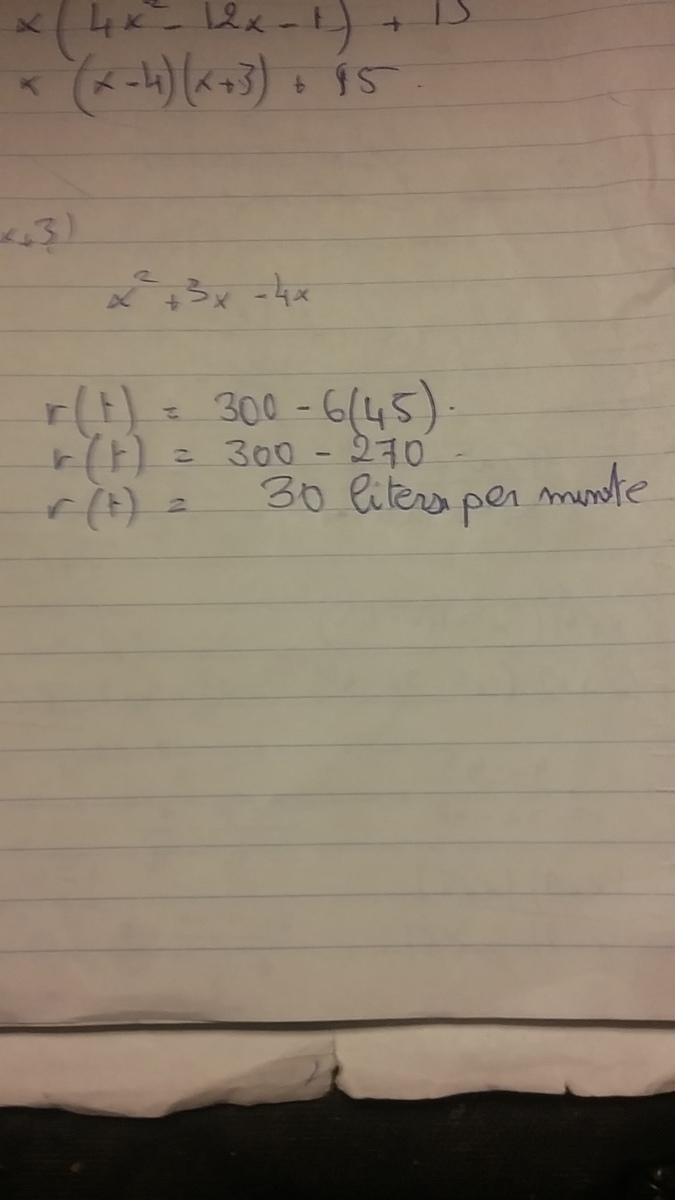 x(4x² - 12x - 1) + 15
x (x-4)(x+3) + 15.
x+3)
x² +3x -4x
r(t) = 300 - 6(45).
r(t) = 300 - 270
r(t) = 30 liters per minute